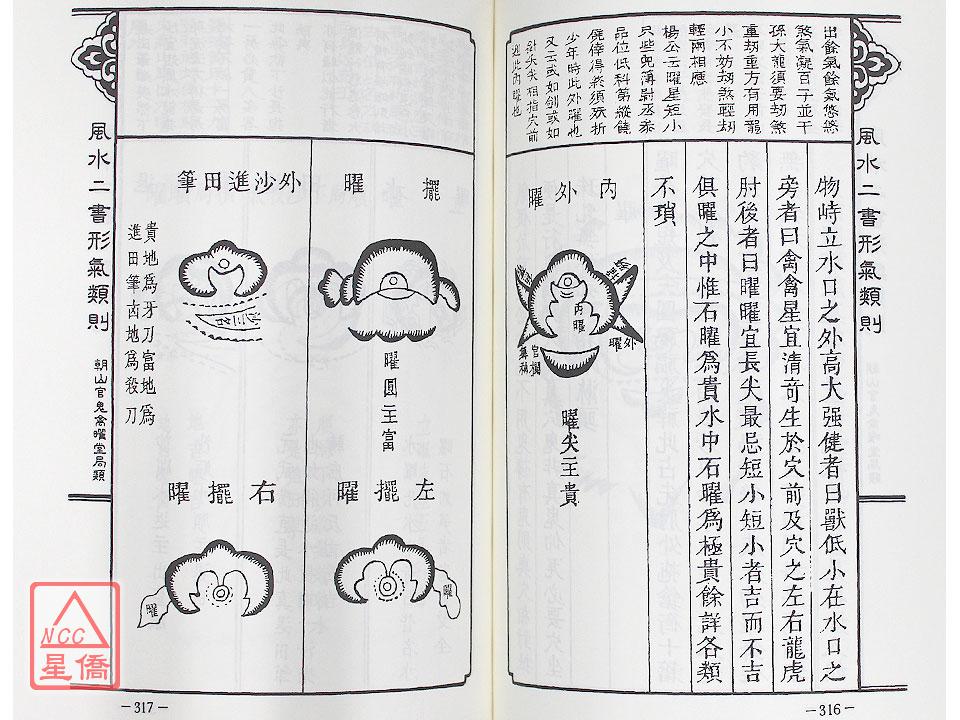 出餘氣餘氣悠悠
煞氣凝百子並千
孫大龍須要刼煞
重刼重方有用龍
小不妨刼煞輕刼
輕兩相應
楊公云曜星短小
只些免薄尉丞参
品位低科第縱饒
僥倖得來須殀折
少年時此外曜也
又云或如劍或如
針尖尖相指穴前
逆此内曜也
物峙立水口之外高大强健者曰獸低小在水口之
旁者曰禽禽星宜清奇生於穴前及穴之左右龍虎
肘後者曰曜曜宜長尖最忌短小短小者吉而不吉
俱曜之中惟石曜爲貴水中石曜爲極貴餘詳各類
不瑣
内外曜
内曜
外曜
官欄
曜尖主貴
風水二書形氣類則
朝山官鬼禽曜堂局類
－316－
擺曜
曜圓主富
左擺曜
曜
外沙進田筆
貴地爲牙刀富地爲
進田筆凶地爲殺刀
右擺曜
曜
風水二書形氣類則
朝山官鬼禽曜堂局類
－317－
NCC
星僑